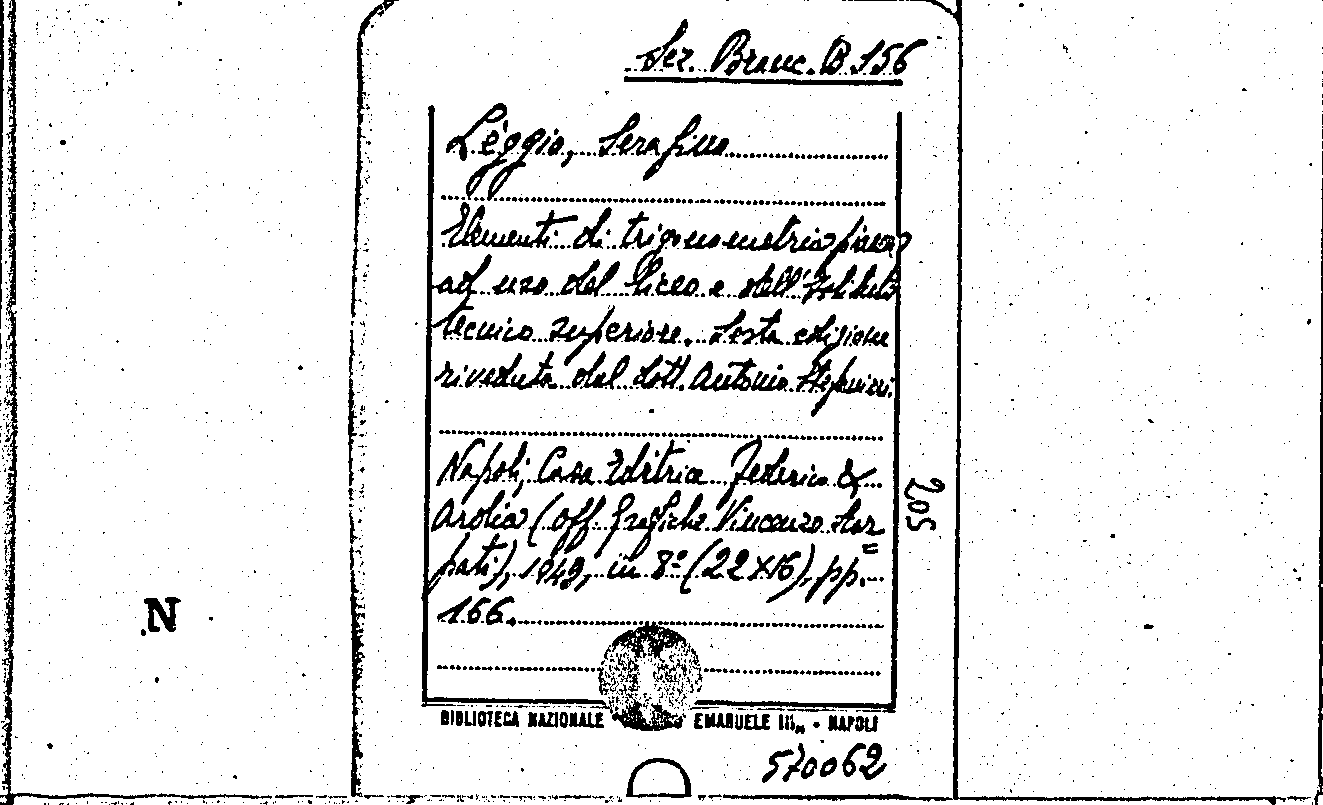 Ser. Branc. B 156
Lèggio, Serafino
Elementi di trigonometria piana
ad uso del liceo e dell'Istituto
tecnico superiore. Sesta edizione
riveduta dal dott. Antonio
Napoli, Casa Editrice Federico &
Ardia (off. grafiche Vincenzo Scar
pati), 1949, in 8º (22×16), pp.
166.
205
N
BIBLIOTECA NAZIONALE EMANUELE III - NAPOLI
570062